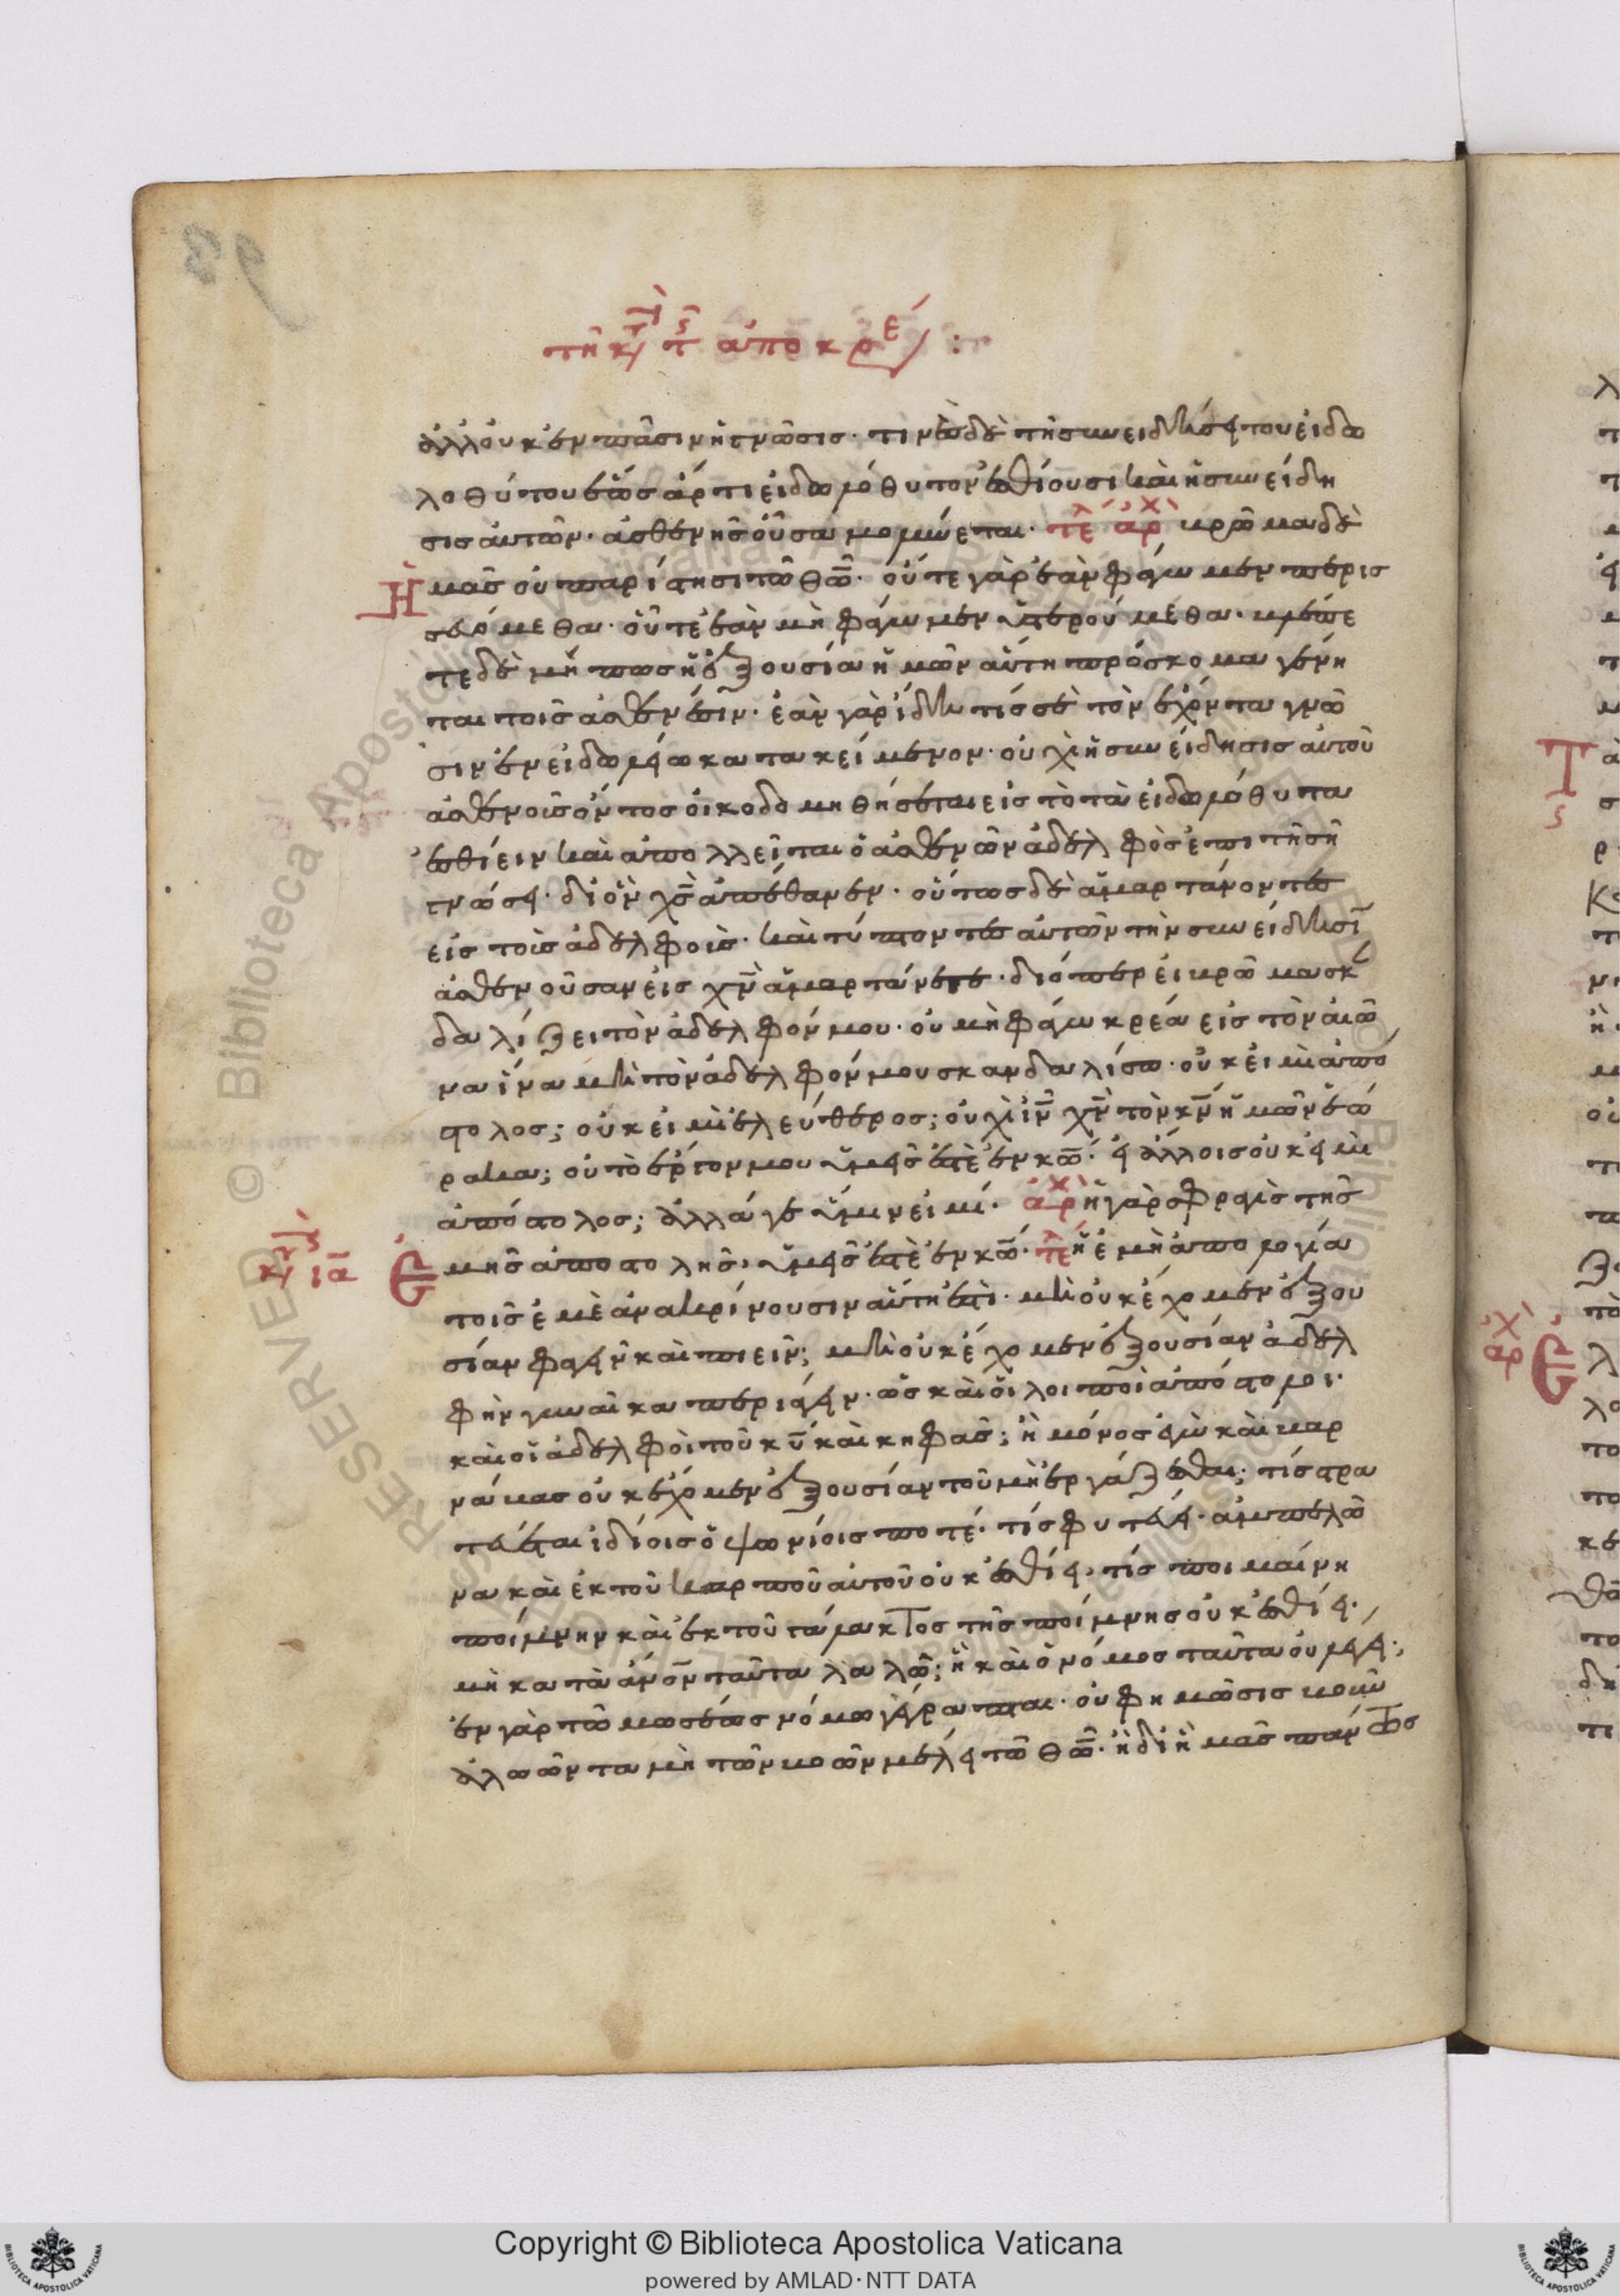 τῆ κυ τ ἀποκρέ :
ἀλλ οὐκ ἐν πᾶσιν ἡ γνῶσις· τινὲς δὲ τῆ συνειδήσει τοῦ εἰδω
λοθύτου ἕως ἄρτι εἰδωλόθυτον ἐσθίουσι καὶ ἡ συνείδη
σις αὐτῶν· ἀσθενὴς οὖσα μολύνεται· τε αρχ βρῶμα δὲ
ἡμᾶς οὐ παρίστησι τῶ θῶ· οὔτε γὰρ ἐὰν φάγωμεν περισ
σεύομεθα· οὔτε ἐὰν μὴ φάγωμεν ὑστερούμεθα· βλέπε
τε δὲ μήπως ἡ ἐξουσία ἡμῶν αὕτη πρόσκομμα γένη
ται τοῖς ἀσθενέσιν· ἐὰν γὰρ ἴδη τίς σὲ τὸν ἔχοντα γνῶ
σιν ἐν εἰδωλείω κατακείμενον· οὐχὶ ἡ συνείδησις αὐτοῦ
ἀσθενοῦς ὄντος οἰκοδομηθήσεται εἰς τὸ τὰ εἰδωλόθυτα
ἐσθίειν καὶ ἀπολλεῖται ὁ ἀσθενῶν ἀδελφὸς ἐπι τῆ σῆ
γνώσει· δι ὃν χς ἀπέθανεν· οὕτως δὲ ἁμαρτάνοντες
εἰς τοὺς ἀδελφοὺς· καὶ τύπτοντες αὐτῶν τὴν συνείδησῖ
ἀσθενοῦσαν εἰς χν ἁμαρτάνετε· διόπερ εἰ βρῶμα σκ
δαλίζει τὸν ἀδελφόν μου· οὐ μὴ φάγω κρέα εἰς τὸν αἰῶ
να ἵνα μὴ τὸν ἀδελφόν μου σκανδαλίσω· οὐκ εἰμὶ ἀπό
στολος; οὐκ εἰμὶ ἐλεύθερος; οὐχὶ ιν χν τὸν κν ἡμῶν ἑώ
ρακα; οὐ τὸ ἔργον μου ὑμεῖς ἐστὲ ἐν κω· εἰ ἄλλοις οὐκ εἰμὶ
ἀπόστολος; ἀλλά γε ὑμῖν εἰμί· αρχ ἡ γὰρ σφραγὶς τῆς
κυ ια ἐμῆς ἀποστολῆς, ὑμεῖς ἐστὲ ἐν κω· τε ἡ ἐμὴ ἀπολογία
τοῖς ἐμὲ ἀνακρίνουσιν αὕτη ἐστὶ· μὴ οὐκ ἔχομεν ἐξου
σίαν φαγεῖν καὶ πιεῖν; μὴ οὐκ ἔχομεν ἐξουσίαν ἀδελ
φὴν γυναῖκα περιάγειν· ὡς καὶ οἱ λοιποὶ ἀπόστολοι·
καὶ οἱ ἀδελφοὶ τοῦ κυ καὶ κηφᾶς; ἢ μόνος ἐγὼ καὶ βαρ
νάβας οὐκ ἔχομεν ἐξουσίαν τοῦ μὴ ἐργάζεσθαι; τίς στρα
τεύεται ἰδίοις ὀψωνίοις ποτέ· τίς φυτεύει· ἀμπελῶ
να καὶ ἐκ τοῦ καρποῦ αὐτοῦ οὐκ ἐσθίει· τίς ποιμαίνη
ποίμνην καὶ ἐκ τοῦ γάλακτος τῆς ποίμνης οὐκ ἐσθίει·
μὴ κατὰ ἄνον ταῦτα λαλῶ; ἢ καὶ ὁ νόμος ταῦτα οὐ λέγει;
ἐν γὰρ τῶ μωσέως νόμω γέγραπται· οὐ φημώσις βοῦν
ἀλοῶντα μὴ τῶν βοῶν μέλει τῶ θῶ· ἢ δι ἡμᾶς πάντως